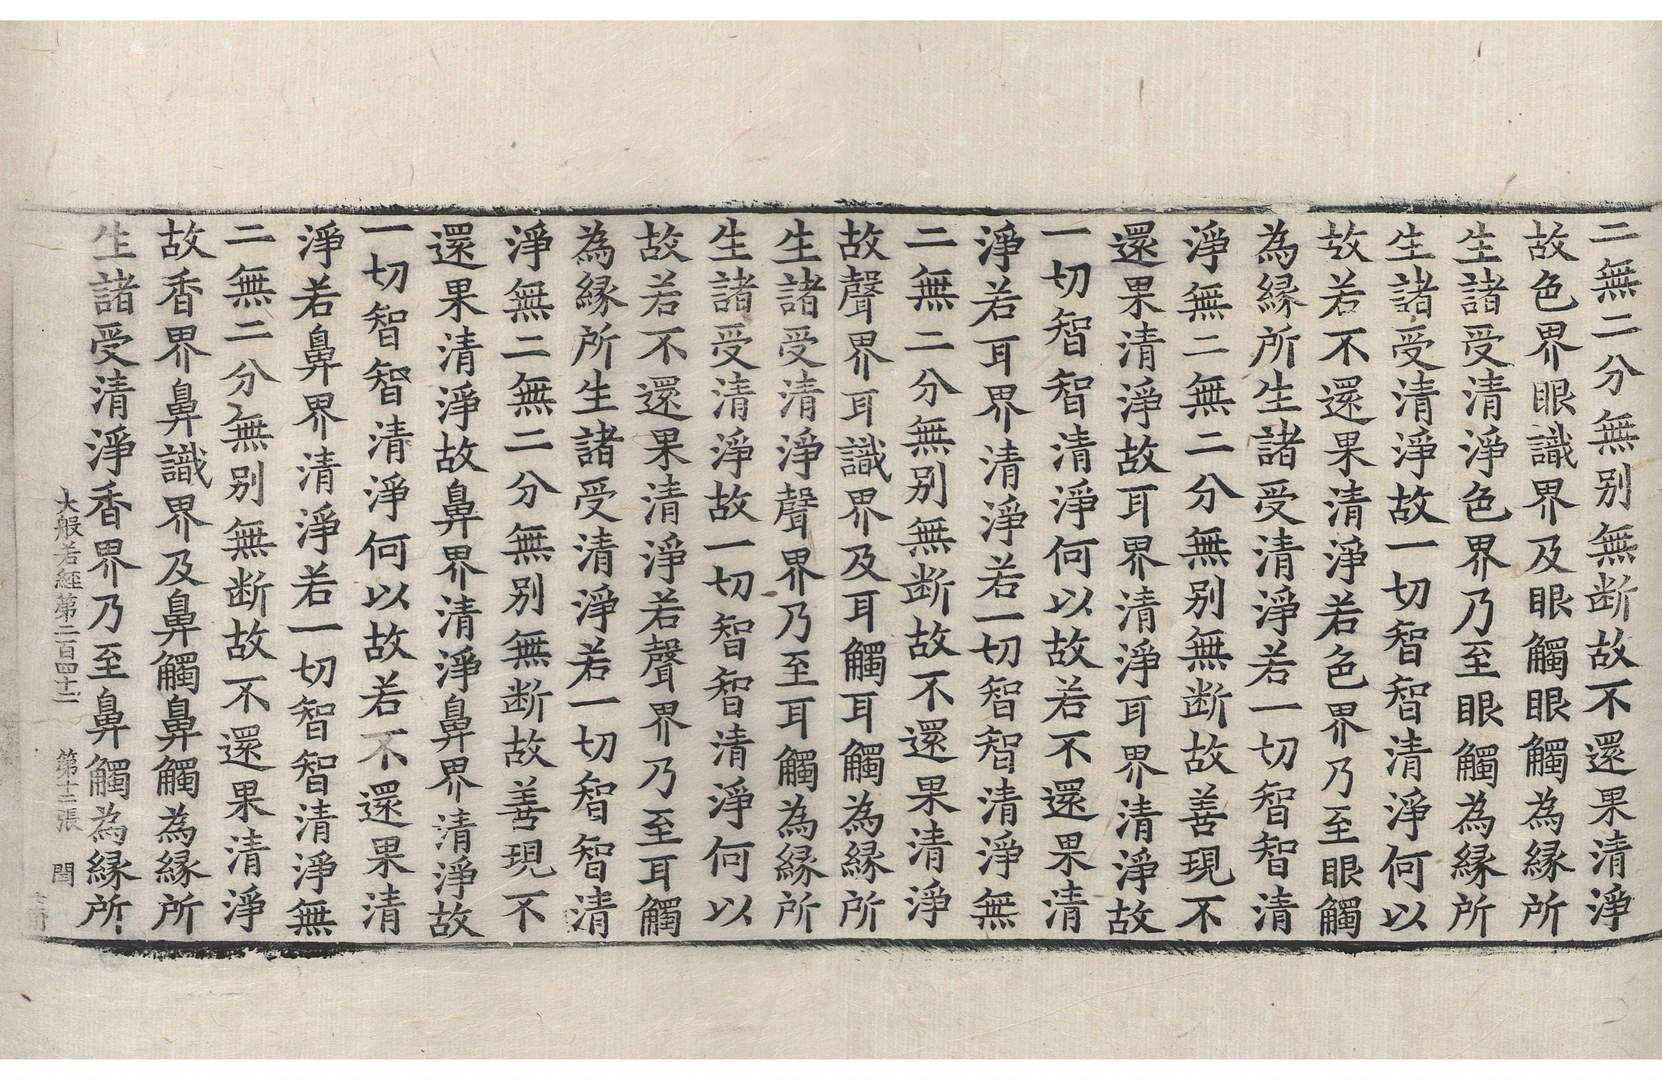 二無二分無別無断故不還果清淨
故色界眼識界及眼觸眼觸為縁所
生諸受清淨色界乃至眼觸為縁所
生諸受清淨故一切智智清淨何以
故若不還果清淨若色界乃至眼觸
為縁所生諸受清淨若一切智智清
淨無二無二分無別無断故善現不
還果清淨故耳界清淨耳界清淨故
一切智智清淨何以故若不還果清
淨若耳界清淨若一切智智清淨無
二無二分無別無断故不還果清淨
故聲界耳識界及耳觸耳觸為縁所
生諸受清淨聲界乃至耳觸為縁所
生諸受清淨故一切智智清淨何以
故若不還果清淨若聲界乃至耳觸
為縁所生諸受清淨若一切智智清
淨無二無二分無別無断故善現不
還果清淨故鼻界清淨鼻界清淨故
一切智智清淨何以故若不還果清
淨若鼻界清淨若一切智智清淨無
二無二分無別無断故不還果清淨
故香界鼻識界及鼻觸鼻觸為縁所
生諸受清淨香界乃至鼻觸為縁所
大般若經第二百四十二 第十二張 閏